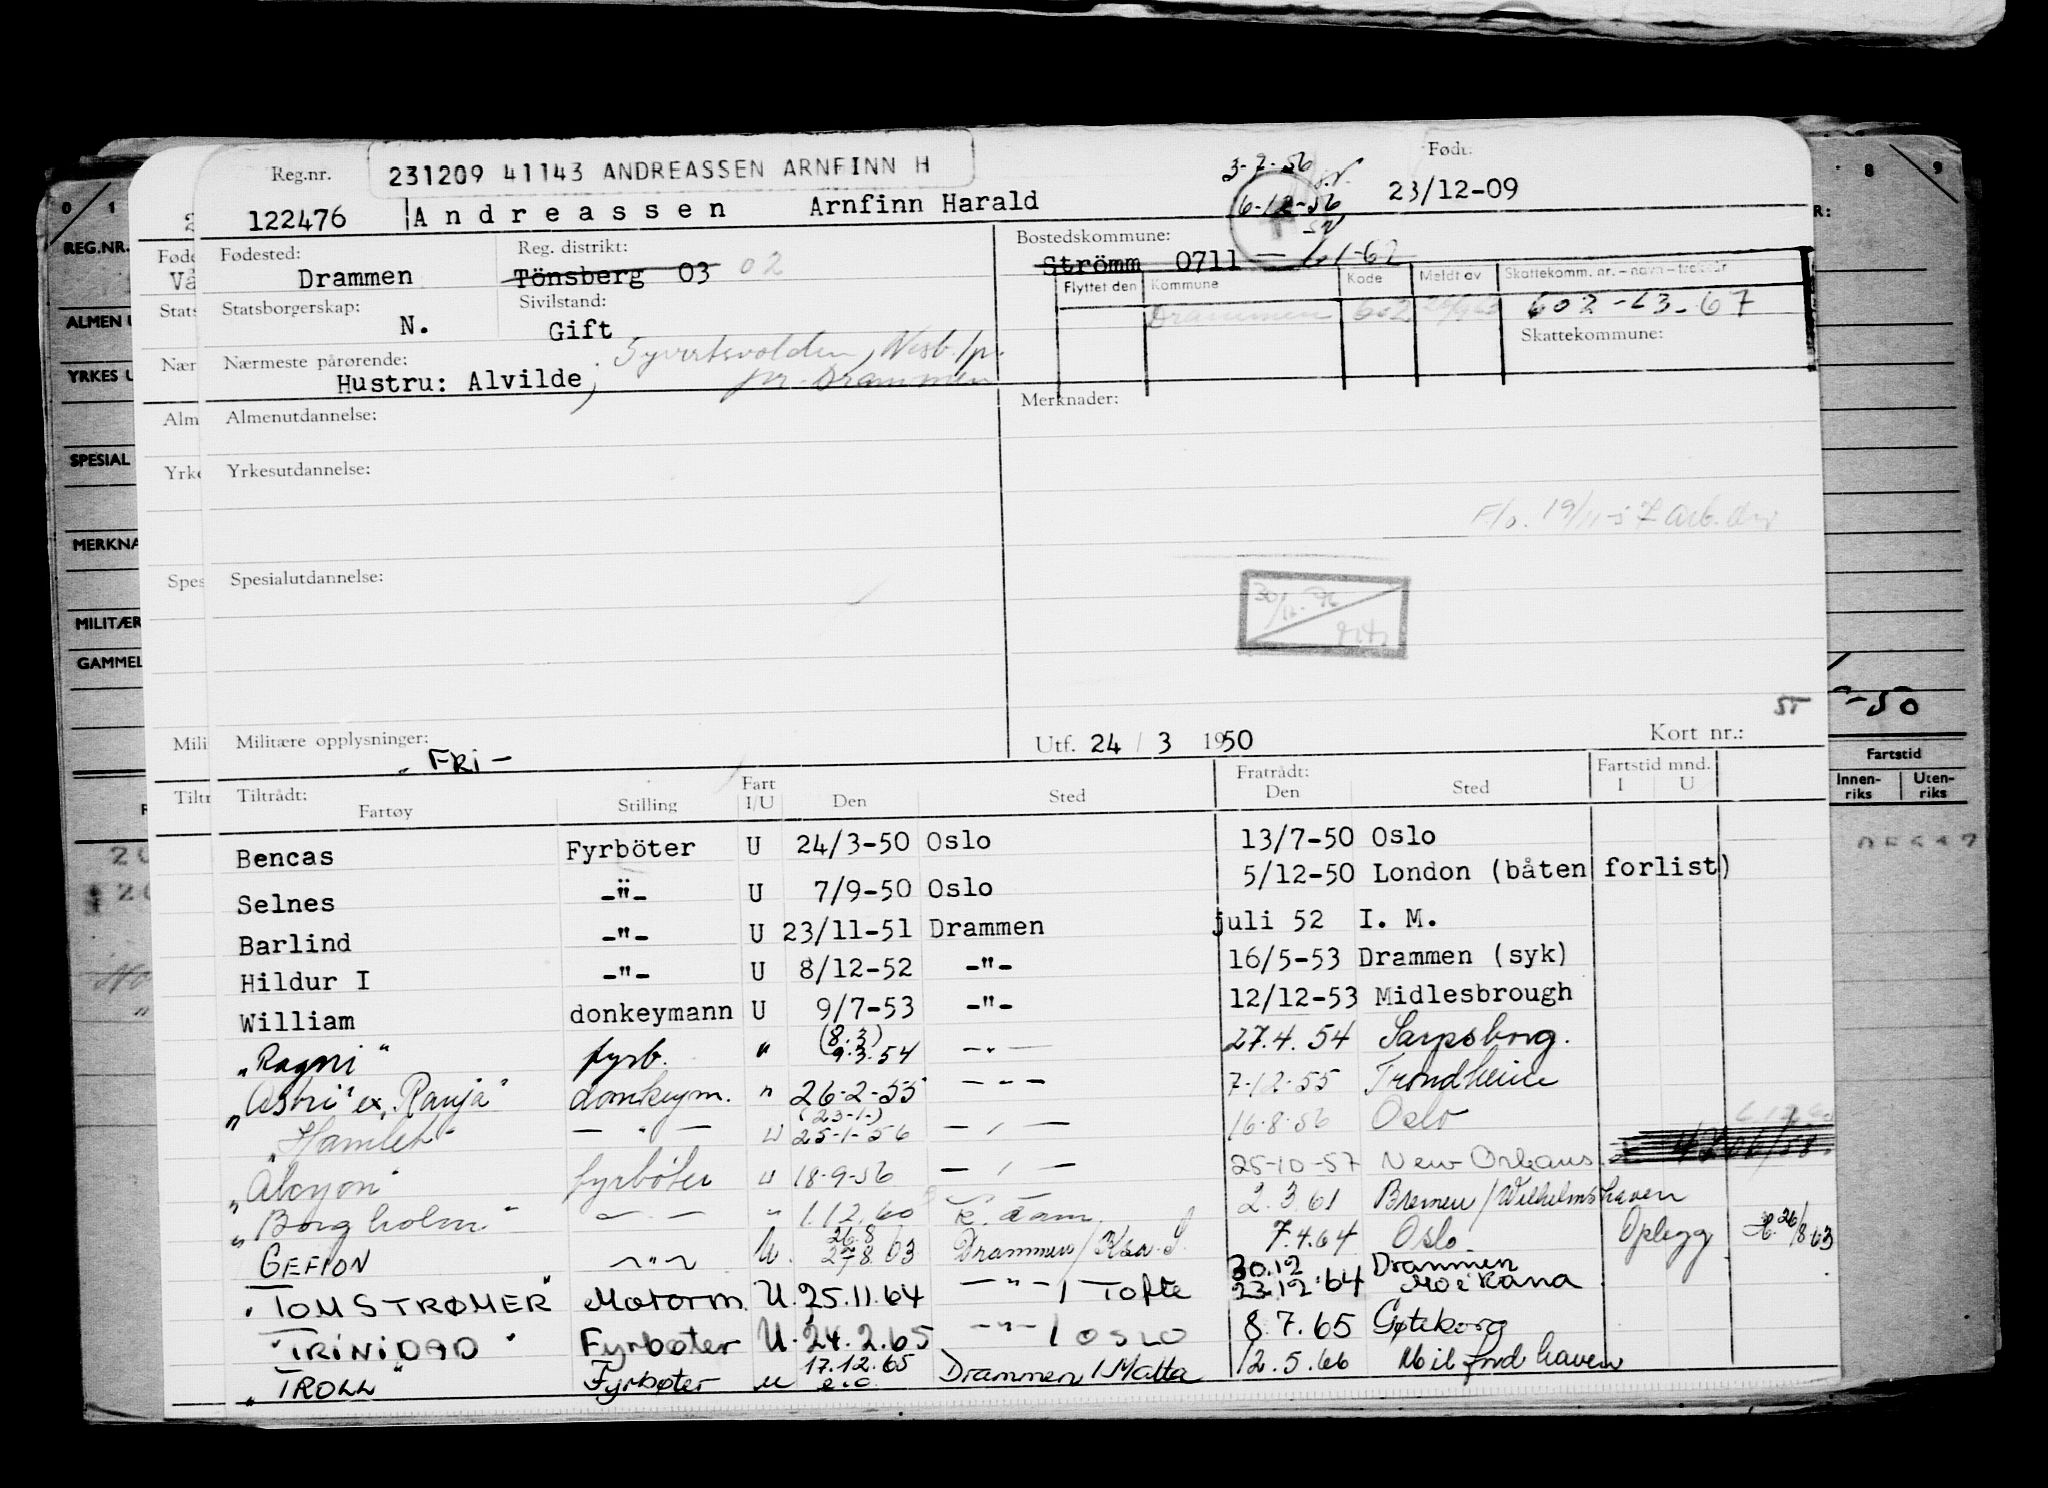 Reg.nr. 231209 41143 ANDREASSEN ARNFINN H 3-7-56 Født:
122476 Andreassen Arnfinn Harald 6-12-56 23/12-09
Fødested: Reg. distrikt: Bostedskommune:
Drammen Tönsberg 03 02 Strömm 0711 - 1-62
Flyttet den Kommune Kode Meldt av Skattekomm. nr. - navn - trekkår
Statsborgerskap: Sivilstand:
N. Gift Drammen 602 602-63-67
Skattekommune:
Nærmeste pårørende:
Hustru: Alvilde; Syvertsvolden, Nesb. /pr.
pr. Drammen
Almenutdannelse: Merknader:
Yrkesutdannelse:
F/o. 19/11-57 arb. dir
Spesialutdannelse:
Militære opplysninger: Utf. 24/3 1950 Kort nr.: 55
FRI-
Tiltrådt: Fratrådt: Fartstid mnd.
Fartøy Stilling Fart I/U Den Sted Den Sted I U
Bencas Fyrböter U 24/3-50 Oslo 13/7-50 Oslo
Selnes -"- U 7/9-50 Oslo 5/12-50 London (båten forlist)
Barlind -"- U 23/11-51 Drammen juli 52 I. M.
Hildur I -"- U 8/12-52 -"- 16/5-53 Drammen (syk)
William donkeymann U 9/7-53 -"- 12/12-53 Midlesbrough
"Ragni" fyrb. " (8.3) 9.3.54 -"- 27.4.54 Sarpsborg.
"Astri" ex "Ranja" donkeym. " 26-2-55 -"- 7-12-55 Trondheim
"Hamlet" -"- U (23-1-) 25-1-56 -"- 16-8-56 Oslo
"Alcyon" fyrböter U 18-9-56 -"- 25-10-57 New Orleans
"Borgholm" -"- " 1.12.60 2.3.61 Bremen/Wilhelmshaven
GEFION -"- U. 26.8 27.8.63 Drammen/ 7.4.64 Oslo Oplegg 26/8 63
"TOM STRØMER" Motorm. U. 25.11.64 -"- / Tofte 30.12 23.12.64 Drammen Moi Rana
"TRINIDAD" Fyrbøter U. 24.2.65 -"- / OSLO 8.7.65 Gøteborg
"TROLL" Fyrbøter U 17.12.65 Drammen / Malta 12.5.66 Milfordhaven
REG.NR.
ALMEN U
YRKES U
SPESIAL
MERKNA
MILITÆR
GAMMEL
-50
Fartstid
Innen-riks Uten-riks